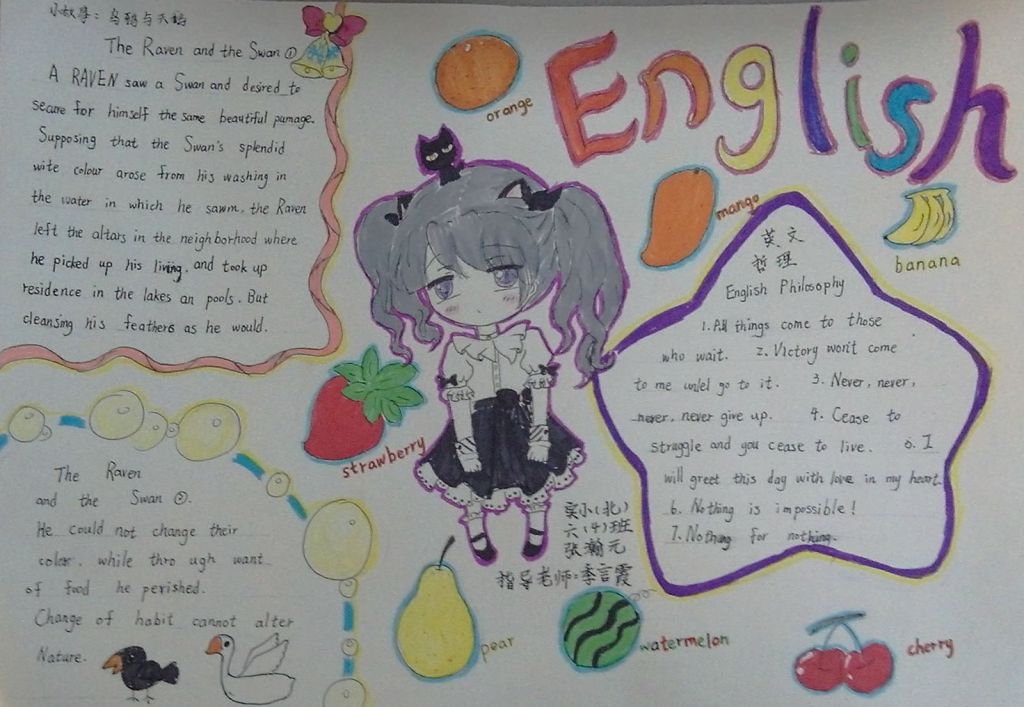 小故事：乌鸦与天鹅
The Raven and the Swan ①
A RAVEN saw a Swan and desired to
secure for himself the same beautiful pumage.
Supposing that the Swan's splendid
wite colour arose from his washing in
the water in which he sawm, the Raven
left the altars in the neighborhood where
he picked up his living, and took up
residence in the lakes an pools. But
cleansing his feathers as he would.
The Raven
and the Swan ②.
He could not change their
color, while thro ugh want
of food he perished.
Change of habit cannot alter
Nature.
English
orange
mango
banana
strawberry
pear
watermelon
cherry
英文
哲理
English Philosophy
1. All things come to those
who wait. 2. Victory won't come
to me go to it. 3. Never, never,
never, never give up. 4. Cease to
struggle and you cease to live. 5. I
will greet this day with love in my heart.
6. Nothing is impossible!
7. Nothing for nothing.
实小(北)
六(4)班
张瀚元
指导老师：季言霞